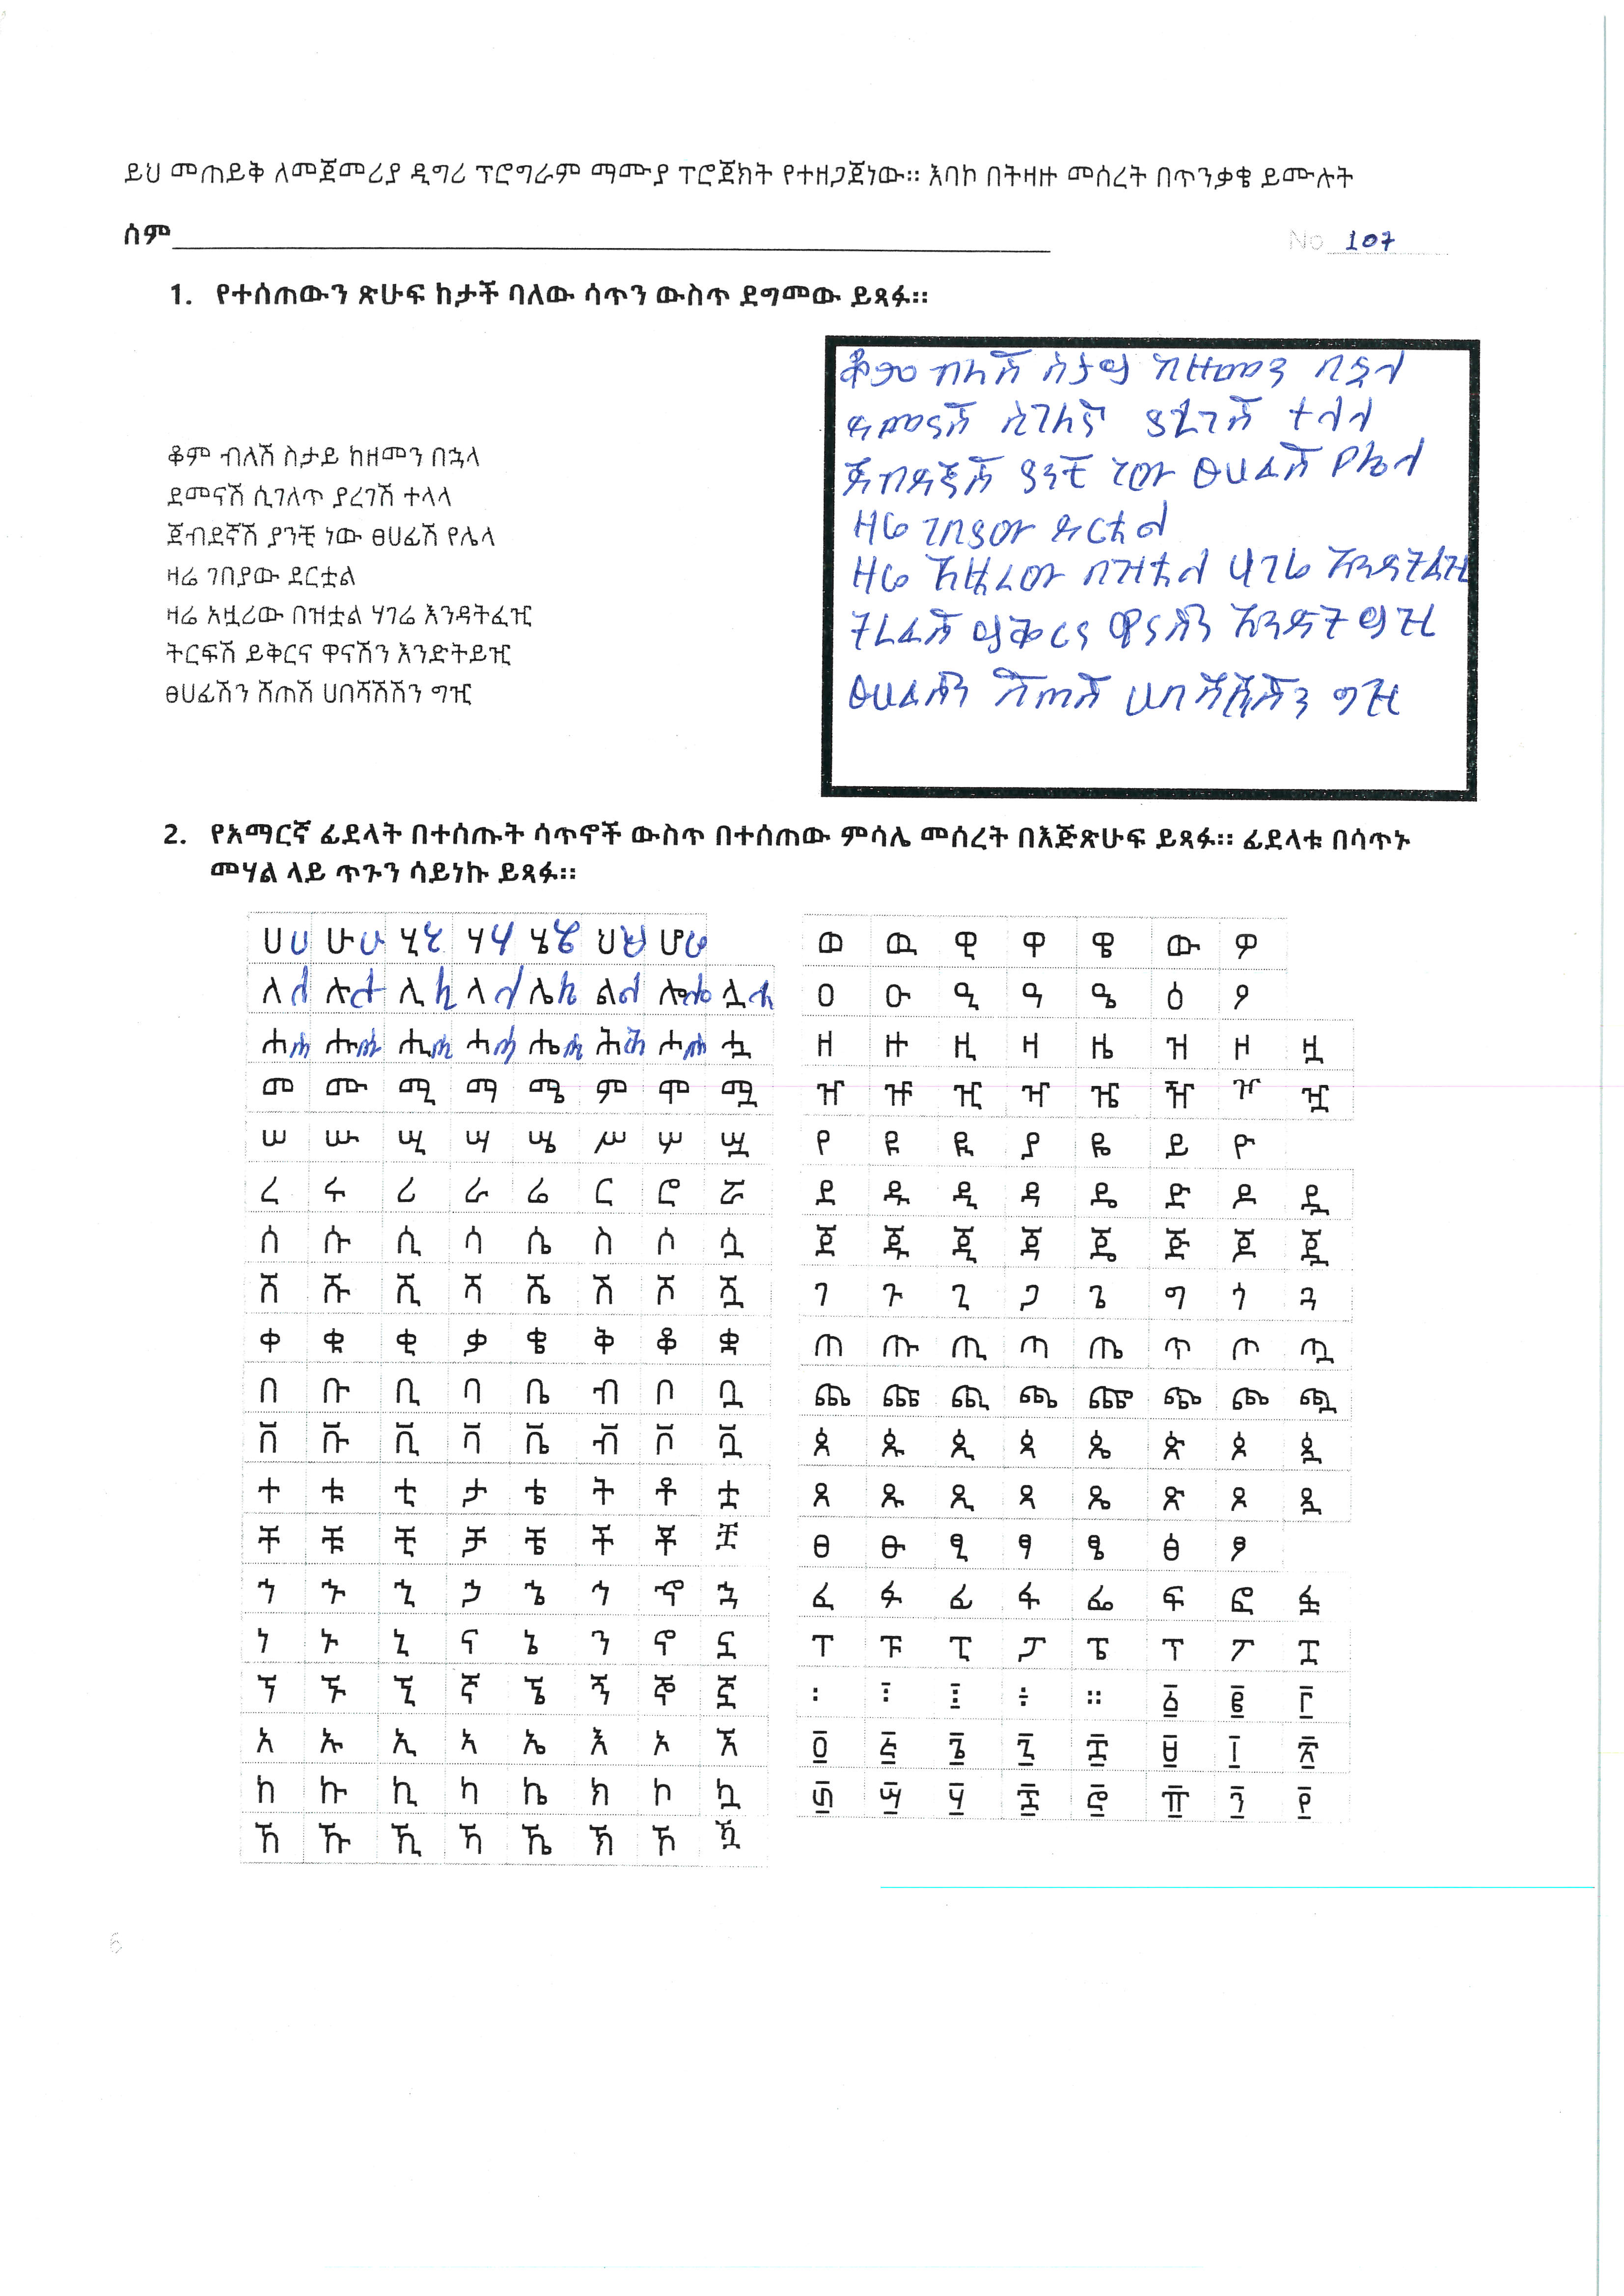 ይህ መጠይቅ ለመጀመሪያ ዲግሪ ፕሮግራም ማሙያ ፕሮጀክት የተዘጋጀነው። እባኮ በትዛዙ መሰረት በጥንቃቄ ይሙሉት
ሰም
No 107
1. የተሰጠውን ጽሁፍ ከታች ባለው ሳጥን ውስጥ ደግመው ይጻፉ።
ቆም ብለሽ ስታይ ከዘመን በኋላ
ደመናሽ ሲገለጥ ያረገሽ ተላላ
ጀብደኛሽ ያንቺ ነው ፀሀፊሽ የሌላ
ዛሬ ገበያው ደርቷል
ዛሬ አዟሪው በዝቷል ሃገሬ እንዳትፈዢ
ትርፍሽ ይቅርና ዋናሽን እንድትይዢ
ፀሀፊሽን ሸጠሽ ሀበሻሽሽን ግዢ
ቆም ብለሽ ስታይ ከዘመን በኋላ
ደመናሽ ሲገለኛ ያረገሽ ተላላ
ጀብዳኛሽ ያንቺ ነው ፀሀፊሽ የሌላ
ዛሬ ገበያው ደርቷል
ዛሬ አዟረው በዝቷል ሃገሬ እንዳትፈዢ
ትረፊሽ ይቅርና ዋናሽን እንድትይዢ
ፀሀፊሽን ሸጠሽ ሀበሻሺሽን ግዢ
2. የአማርኛ ፊደላት በተሰጡት ሳጥኖች ውስጥ በተሰጠው ምሳሌ መሰረት በእጅጽሁፍ ይጻፉ። ፊደላቱ በሳጥኑ
መሃል ላይ ጥጉን ሳይነኩ ይጻፉ።
ሀ ሀ ሁ ሁ ሂ ሂ ሃ ሃ ሄ ሄ ህ ህ ሆ ሆ
ለ ለ ሉ ሉ ሊ ሊ ላ ላ ሌ ሌ ል ል ሎ ሎ ሏ ሏ
ሐ ሐ ሑ ሑ ሒ ሒ ሓ ሓ ሔ ሔ ሕ ሕ ሖ ሖ ሗ
መ ሙ ሚ ማ ሜ ም ሞ ሟ
ሠ ሡ ሢ ሣ ሤ ሥ ሦ ሧ
ረ ሩ ሪ ራ ሬ ር ሮ ሯ
ሰ ሱ ሲ ሳ ሴ ስ ሶ ሷ
ሸ ሹ ሺ ሻ ሼ ሽ ሾ ሿ
ቀ ቁ ቂ ቃ ቄ ቅ ቆ ቋ
በ ቡ ቢ ባ ቤ ብ ቦ ቧ
ቨ ቩ ቪ ቫ ቬ ቭ ቮ ቯ
ተ ቱ ቲ ታ ቴ ት ቶ ቷ
ቸ ቹ ቺ ቻ ቼ ች ቾ ቿ
ኀ ኁ ኂ ኃ ኄ ኅ ኆ ኋ
ነ ኑ ኒ ና ኔ ን ኖ ኗ
ኘ ኙ ኚ ኛ ኜ ኝ ኞ ኟ
አ ኡ ኢ ኣ ኤ እ ኦ ኧ
ከ ኩ ኪ ካ ኬ ክ ኮ ኳ
ኸ ኹ ኺ ኻ ኼ ኽ ኾ ዃ
ወ ዉ ዊ ዋ ዌ ው ዎ
ዐ ዑ ዒ ዓ ዔ ዕ ዖ
ዘ ዙ ዚ ዛ ዜ ዝ ዞ ዟ
ዠ ዡ ዢ ዣ ዤ ዥ ዦ ዧ
የ ዩ ዪ ያ ዬ ይ ዮ
ደ ዱ ዲ ዳ ዴ ድ ዶ ዷ
ጀ ጁ ጂ ጃ ጄ ጅ ጆ ጇ
ገ ጉ ጊ ጋ ጌ ግ ጎ ጓ
ጠ ጡ ጢ ጣ ጤ ጥ ጦ ጧ
ጨ ጩ ጪ ጫ ጬ ጭ ጮ ጯ
ጰ ጱ ጲ ጳ ጴ ጵ ጶ ጷ
ጸ ጹ ጺ ጻ ጼ ጽ ጾ ጿ
ፀ ፁ ፂ ፃ ፄ ፅ ፆ
ፈ ፉ ፊ ፋ ፌ ፍ ፎ ፏ
ፐ ፑ ፒ ፓ ፔ ፕ ፖ ፗ
፡ ፧ ፨ ፥ ። ፩ ፪ ፫
፬ ፭ ፮ ፯ ፰ ፱ ፲ ፳
፴ ፵ ፶ ፷ ፸ ፹ ፺ ፻